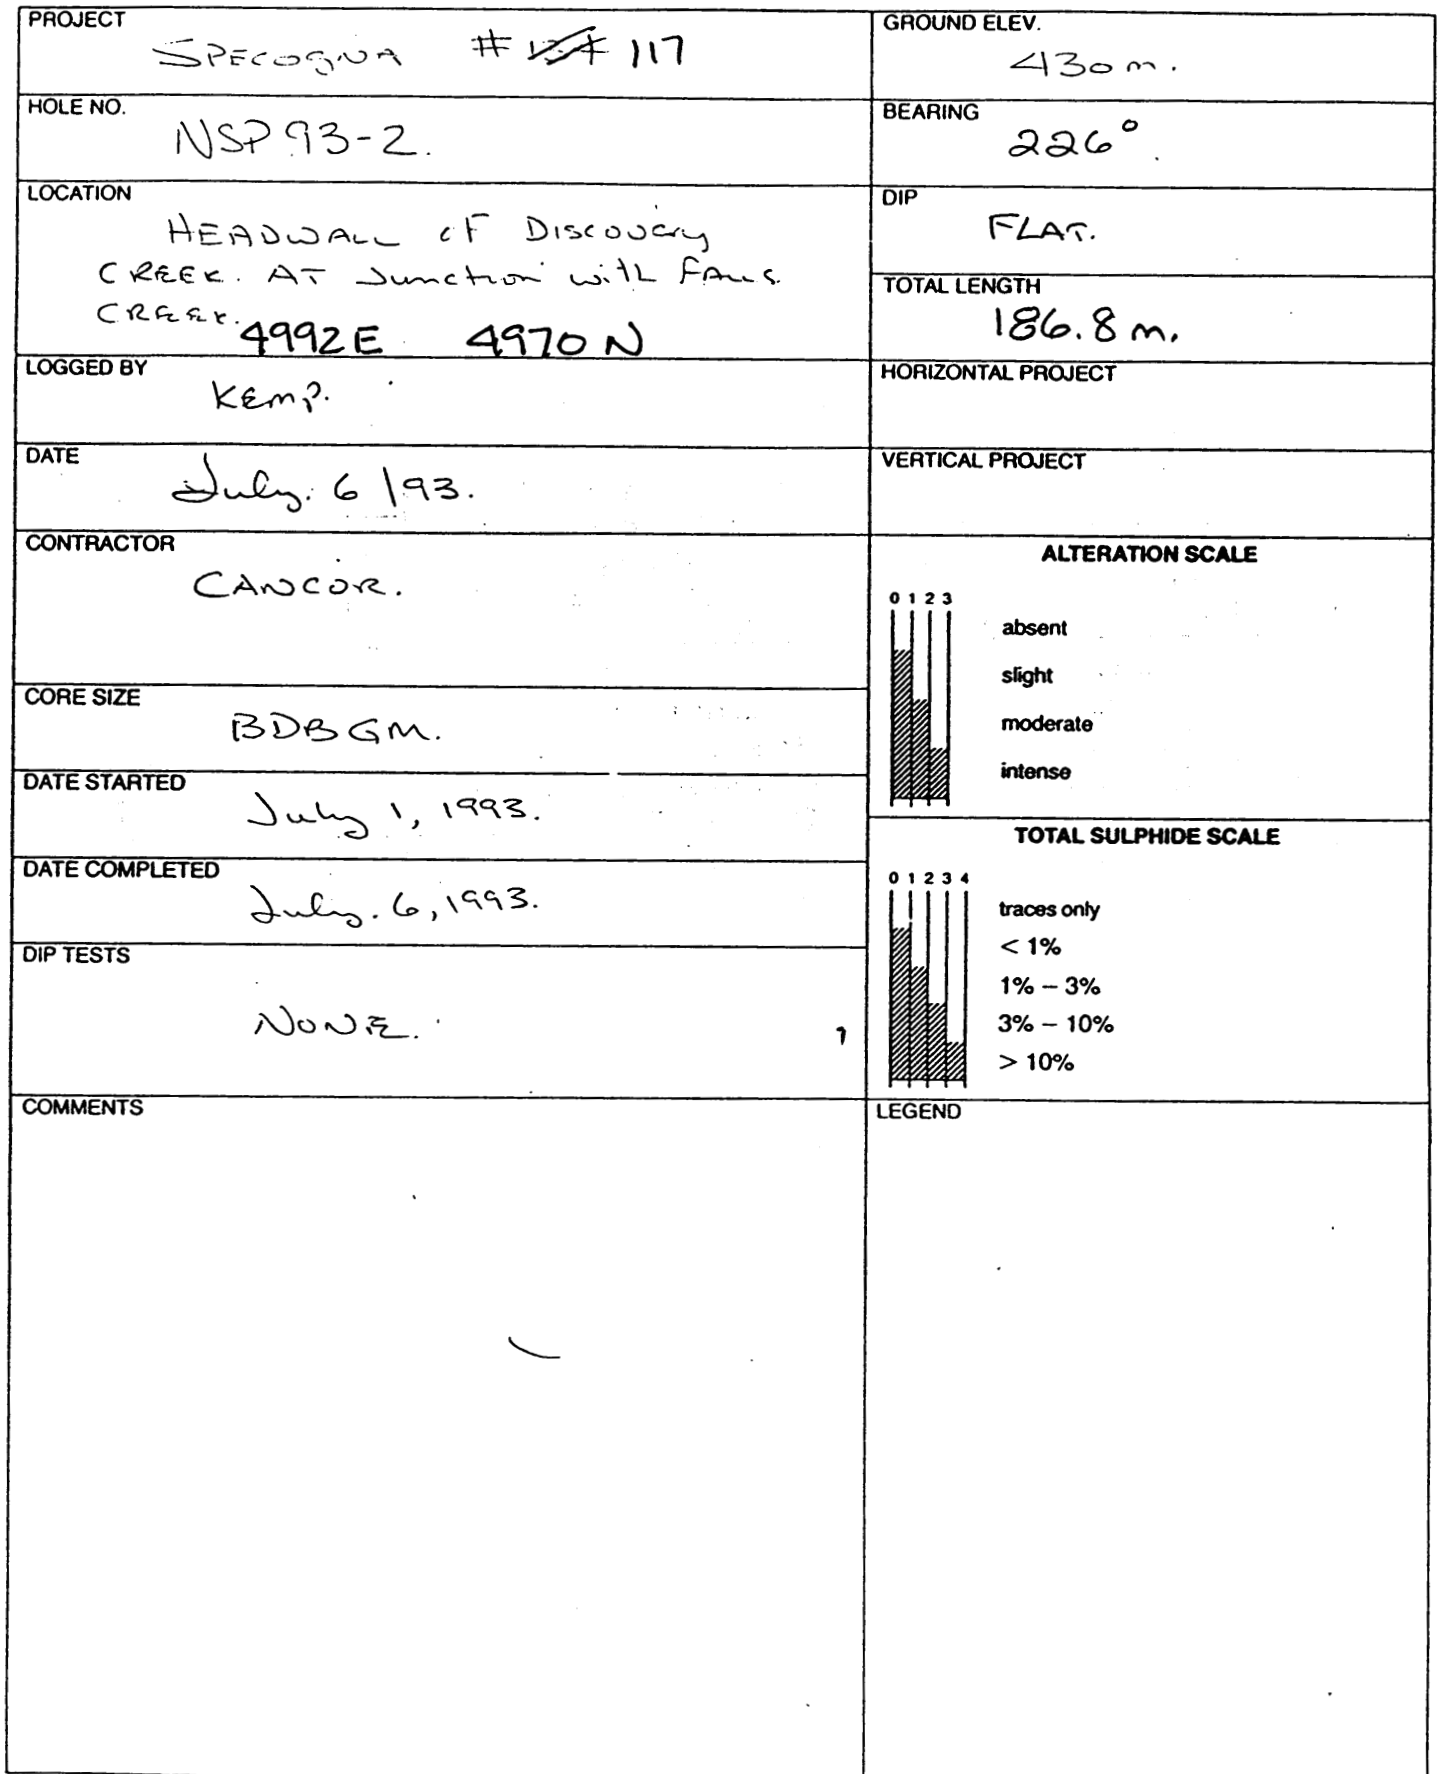 PROJECT
SPECOGNA # 117
HOLE NO.
NSP 93-2.
LOCATION
HEADWALL OF DISCOVERY
CREEK. AT Junction with FALLS
CREEK.
4992E 4970 N
LOGGED BY
KEMP.
DATE
July. 6 / 93.
CONTRACTOR
CANCOR.
CORE SIZE
BDBGM.
DATE STARTED
July 1, 1993.
DATE COMPLETED
July. 6, 1993.
DIP TESTS
NONE.
COMMENTS
GROUND ELEV.
430 m.
BEARING
226°
DIP
FLAT.
TOTAL LENGTH
186.8 m.
HORIZONTAL PROJECT
VERTICAL PROJECT
ALTERATION SCALE
0 1 2 3
absent
slight
moderate
intense
TOTAL SULPHIDE SCALE
0 1 2 3 4
traces only
< 1%
1% – 3%
3% – 10%
> 10%
LEGEND